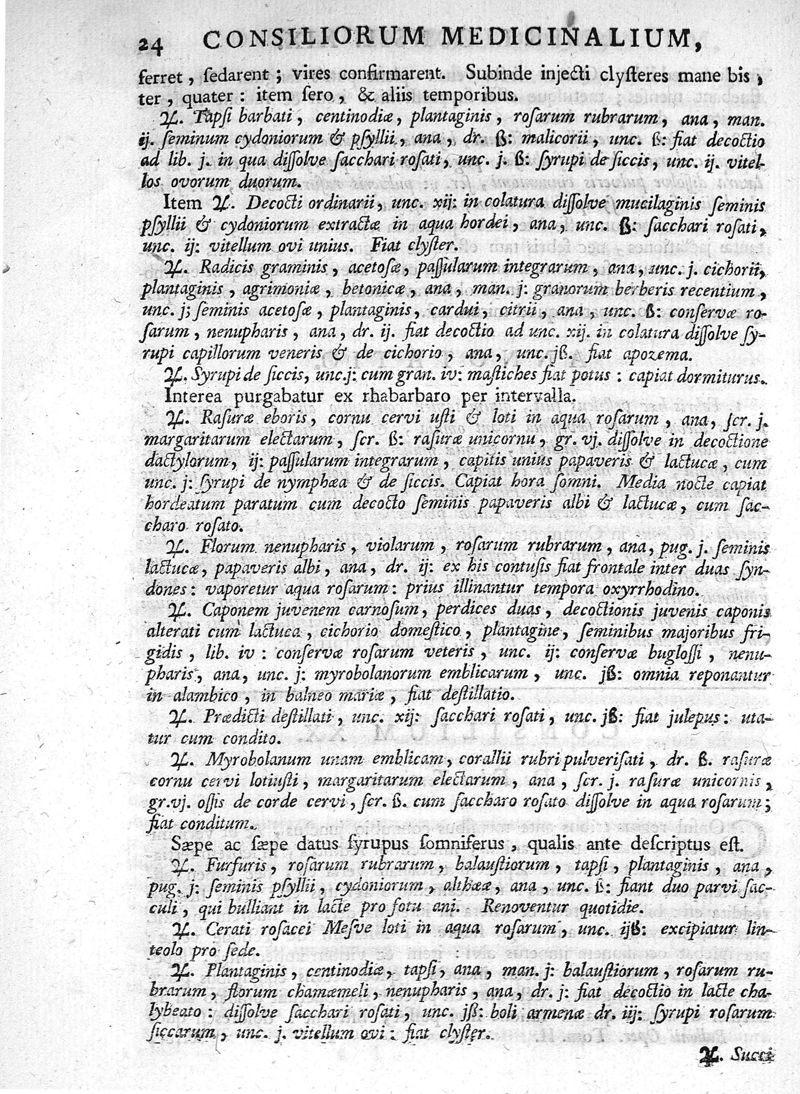 24 CONSILIORUM MEDICINALIUM,
ferret, ſedarent; vires confirmarent. Subinde injecti clyſteres mane bis,
ter, quater: item ſero, & aliis temporibus.
℞. Tapſi barbati, centinodiæ, plantaginis, roſarum rubrarum, ana, man.
ij. ſeminum cydoniorum & pſyllii, ana, dr. ß: malicorii, unc. ß: fiat decoctio
ad lib. j. in qua diſſolve ſacchari roſati, unc. j. ß: ſyrupi de ſiccis, unc. ij. vitel-
los ovorum duorum.
Item ℞. Decocti ordinarii, unc. xij: in colatura diſſolve mucilaginis ſeminis
pſyllii & cydoniorum extractæ in aqua hordei, ana, unc. ß: ſacchari roſati,
unc. ij: vitellum ovi unius. Fiat clyſter.
℞. Radicis graminis, acetoſæ, paſſularum integrarum, ana, unc. j. cichorii,
plantaginis, agrimoniæ, betonicæ, ana, man. j: granorum berberis recentium,
unc. j; ſeminis acetoſæ, plantaginis, cardui, citrii, ana, unc. ß: conſervæ ro-
ſarum, nenupharis, ana, dr. ij. fiat decoctio ad unc. xij. in colatura diſſolve ſy-
rupi capillorum veneris & de cichorio, ana, unc. jß. fiat apozema.
℞. Syrupi de ſiccis, unc. j: cum gran. iv: maſtiches fiat potus: capiat dormiturus.
Interea purgabatur ex rhabarbaro per intervalla.
℞. Raſuræ eboris, cornu cervi uſti & loti in aqua roſarum, ana, ſcr. j.
margaritarum electarum, ſcr. ß: raſuræ unicornu, gr. vj. diſſolve in decoctione
dactylorum, ij: paſſularum integrarum, capitis unius papaveris & lactucæ, cum
unc. j: ſyrupi de nymphæa & de ſiccis. Capiat hora ſomni. Media nocte capiat
hordeatum paratum cum decocto ſeminis papaveris albi & lactucæ, cum ſac-
charo roſato.
℞. Florum nenupharis, violarum, roſarum rubrarum, ana, pug. j. ſeminis
lactucæ, papaveris albi, ana, dr. ij: ex his contuſis fiat frontale inter duas ſyn-
dones: vaporetur aqua roſarum: prius illinantur tempora oxyrrhodino.
℞. Caponem juvenem carnoſum, perdices duas, decoctionis juvenis caponis
alterati cum lactuca, cichorio domeſtico, plantagine, ſeminibus majoribus fri-
gidis, lib. iv: conſervæ roſarum veteris, unc. ij: conſervæ bugloſſi, nenu-
pharis, ana, unc. j: myrobolanorum emblicarum, unc. jß: omnia reponantur
in alambico, in balneo mariæ, fiat deſtillatio.
℞. Prædicti deſtillati, unc. xij: ſacchari roſati, unc. jß: fiat julepus: uta-
tur cum condito.
℞. Myrobolanum unam emblicam, corallii rubri pulveriſati, dr. ß. raſuræ
cornu cervi lotiuſti, margaritarum electarum, ana, ſcr. j. raſuræ unicornis,
gr. vj. oſſis de corde cervi, ſcr. ß. cum ſaccharo roſato diſſolve in aqua roſarum;
fiat conditum.
Sæpe ac ſæpe datus ſyrupus ſomniferus, qualis ante deſcriptus eſt.
℞. Furfuris, roſarum rubrarum, balauſtiorum, tapſi, plantaginis, ana,
pug. j: ſeminis pſyllii, cydoniorum, altheæ, ana, unc. ß: fiant duo parvi ſac-
culi, qui bulliant in lacte pro fotu ani. Renoventur quotidie.
℞. Cerati roſacei Meſve loti in aqua roſarum, unc. ijß: excipiatur lin-
teolo pro ſede.
℞. Plantaginis, centinodiæ, tapſi, ana, man. j: balauſtiorum, roſarum ru-
brarum, florum chamæmeli, nenupharis, ana, dr. j: fiat decoctio in lacte cha-
lybeato: diſſolve ſacchari roſati, unc. jß: boli armenæ dr. iij: ſyrupi roſarum
ſiccarum, unc. j. vitellum ovi: fiat clyſter.
℞. Succi